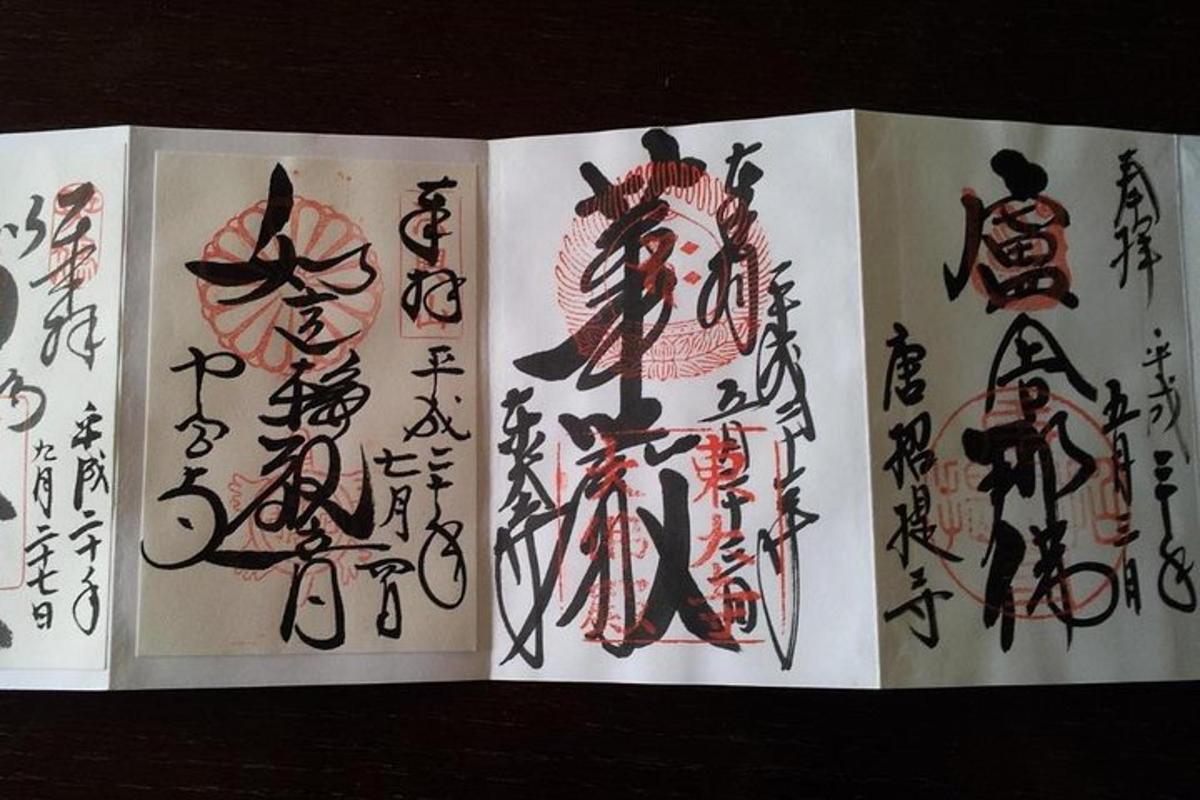 奉拝
平成二十年
五月三日
盧舎那佛
唐招提寺
奉拝
平成二十年
五月十三日
華嚴
東大寺
東大寺
大佛殿
奉拝
平成二十年
七月四日
如意輪観音
奉拝
平成二十年
九月二十七日